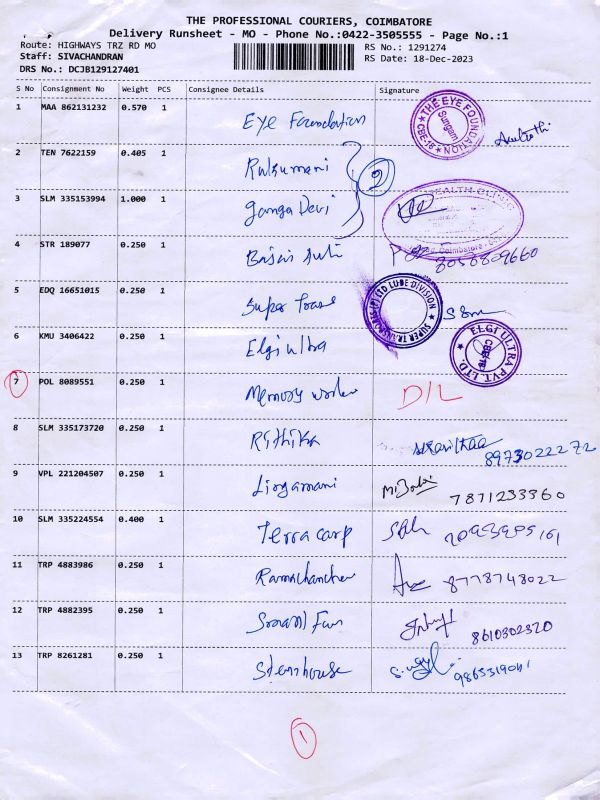 THE PROFESSIONAL COURIERS, COIMBATORE
Delivery Runsheet - MO - Phone No.:0422-3505555 - Page No.:1
Route: HIGHWAYS TRZ RD MO
RS No.: 1291274
Staff: SIVACHANDRAN
RS Date: 18-Dec-2023
DRS No.: DCJB129127401
S No Consignment No Weight PCS Consignee Details Signature
1 MAA 862131232 0.570 1 Eye Foundation
THE EYE FOUNDATION
Sungam
CBE-18
2 TEN 7622159 0.405 1 Rukumani
2
3 SLM 335153994 1.000 1 Ganga Devi
HEALTH CLINIC
Coimbatore
4 STR 189077 0.250 1 Bajai
8056809660
5 EDQ 16651015 0.250 1 Super Trans
(P) LTD LUBE DIVISION
6 KMU 3406422 0.250 1 Elgi Ultra
ELGI ULTRA PVT. LTD.
7 POL 8089551 0.250 1 Memory D/L
8 SLM 335173720 0.250 1 Rithika
8973022272
9 VPL 221204507 0.250 1 Lingamani
7871233360
10 SLM 335224554 0.400 1 Terra carp
11 TRP 4883986 0.250 1 Ramachander
8778748022
12 TRP 4882395 0.250 1
8610302320
13 TRP 8261281 0.250 1 Stenhouse
1